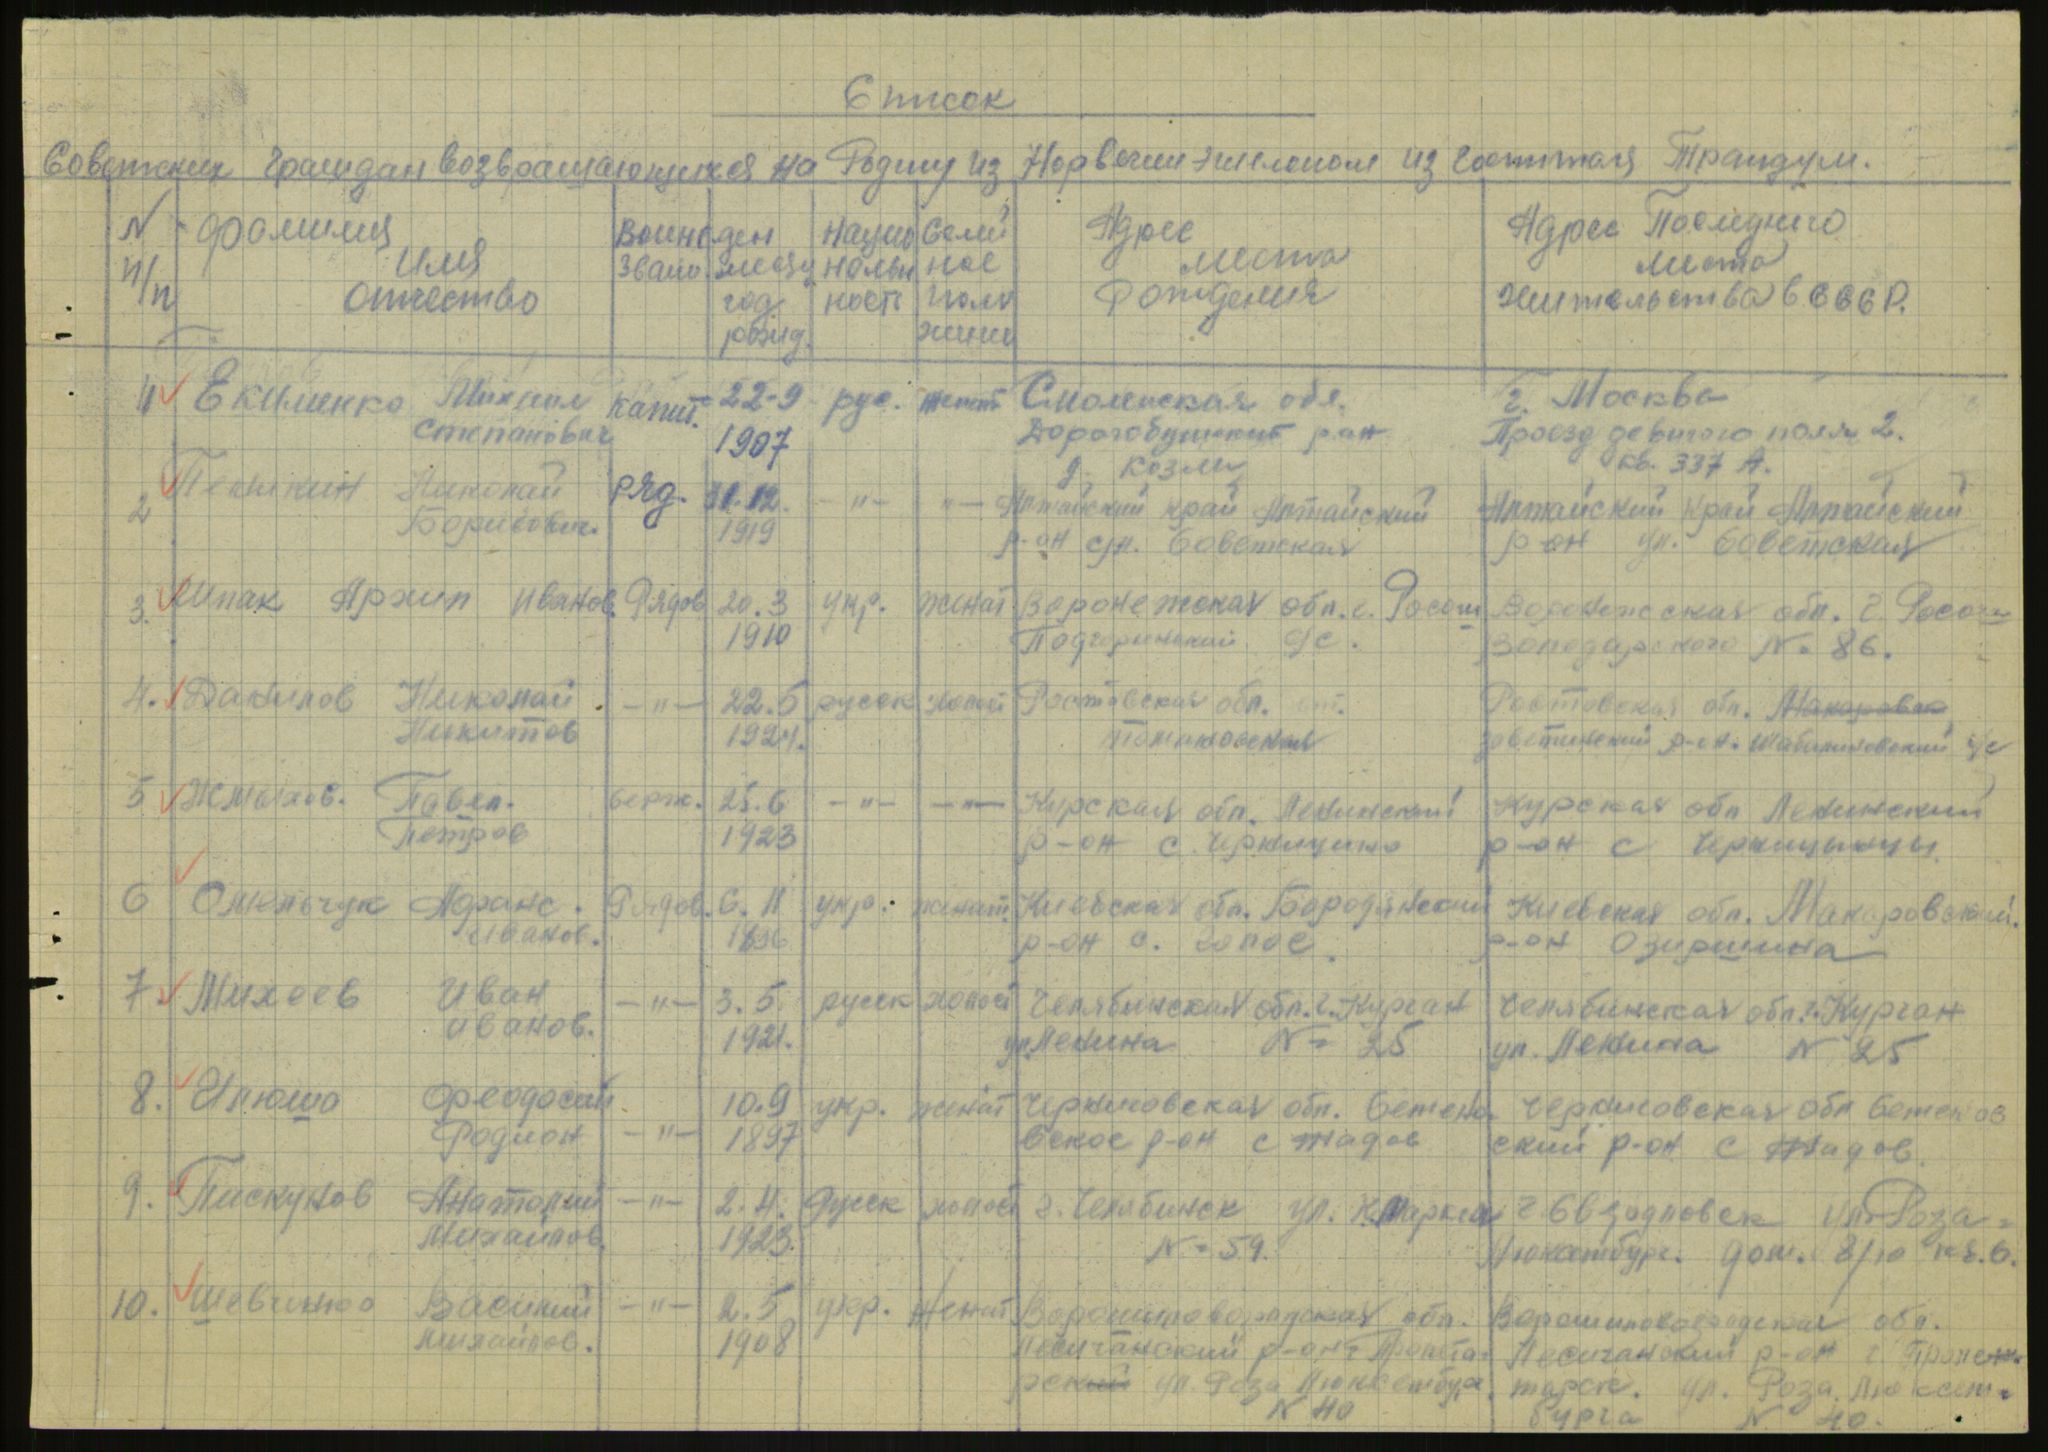 Список
Советских Граждан возвращающихся на Родину из Норвегии эшелоном из госпиталя Трандум.
N п/п
Фамилия Имя Отчество
Воинс звани.
ден месяц год рожд.
Национальность
Семй ное поло жини
Адрес места Рождения
Адрес Последнего места жительства в СССР.
1 Екименко Михаил Степанович капит. 22-9 1907 рус. женат Смоленская обл. Дорогобужский р-он д. Козлы г. Москва Проезд девичего поля 2. кв. 337 А.
2 Николай Борисович. ряд. 31.12. 1919 -"- "- Алтайский край Алтайский р-он ул. Советская Алтайский край Алтайский р-он ул. Советская
3. Шпак Архип Иванов Рядов 20.3 1910 укр. женат Воронежская обл. г. Росош Подгоринский с/с. Воронежская обл. г. Росош N- 86.
4. Данилов Николай Никитов -"- 22.5 1924. русск холост Ростовская обл. Ростовская обл. р-он. с/с
5 Жмыхов. Павел. Петров серж. 25.6 1923 -"- -"- Курская обл. Ленинский р-он с. Черницино Курская обл Ленинский р-он с Черницыны.
6 Омельчук Афанс. Иванов. Рядов. 6.11 1896 укр. женат Киевская обл. Бородянский р-он с. Киевская обл. Макаровский. р-он Озиршина
7. Михеев Иван Иванов. -"- 3.5. 1921. русск холост Челябинская обл. г. Курган ул. Ленина N- 25 Челябинская обл. г. Курган ул. Ленина N 25
8. Илюшо Феодосий Родион -"- 10.9 1897 укр. женат Черниговская обл. Семено вское р-он с жадов Черниговская обл Семенов ский р-он с жадов.
9. Пискунов Анатолий Михайлов. -"- 2.4. 1923. Русск холост г. Челябинск ул. К.Маркса N- 59. г Свердловск ул. Роза- Люксембург. дом. 8/10 кв.6.
10. Шевченко Василий Михайлов. -"- 2.5 1908 укр. Женат Ворошиловоградская обл. Лесичанский р-он г Пролета- рский ул. Роза Люксембург. N 40 Ворошиловоградская обл. Лесичанский р-он г. Пролен- тарск. ул. Роза Люксем- бурга N- 40.